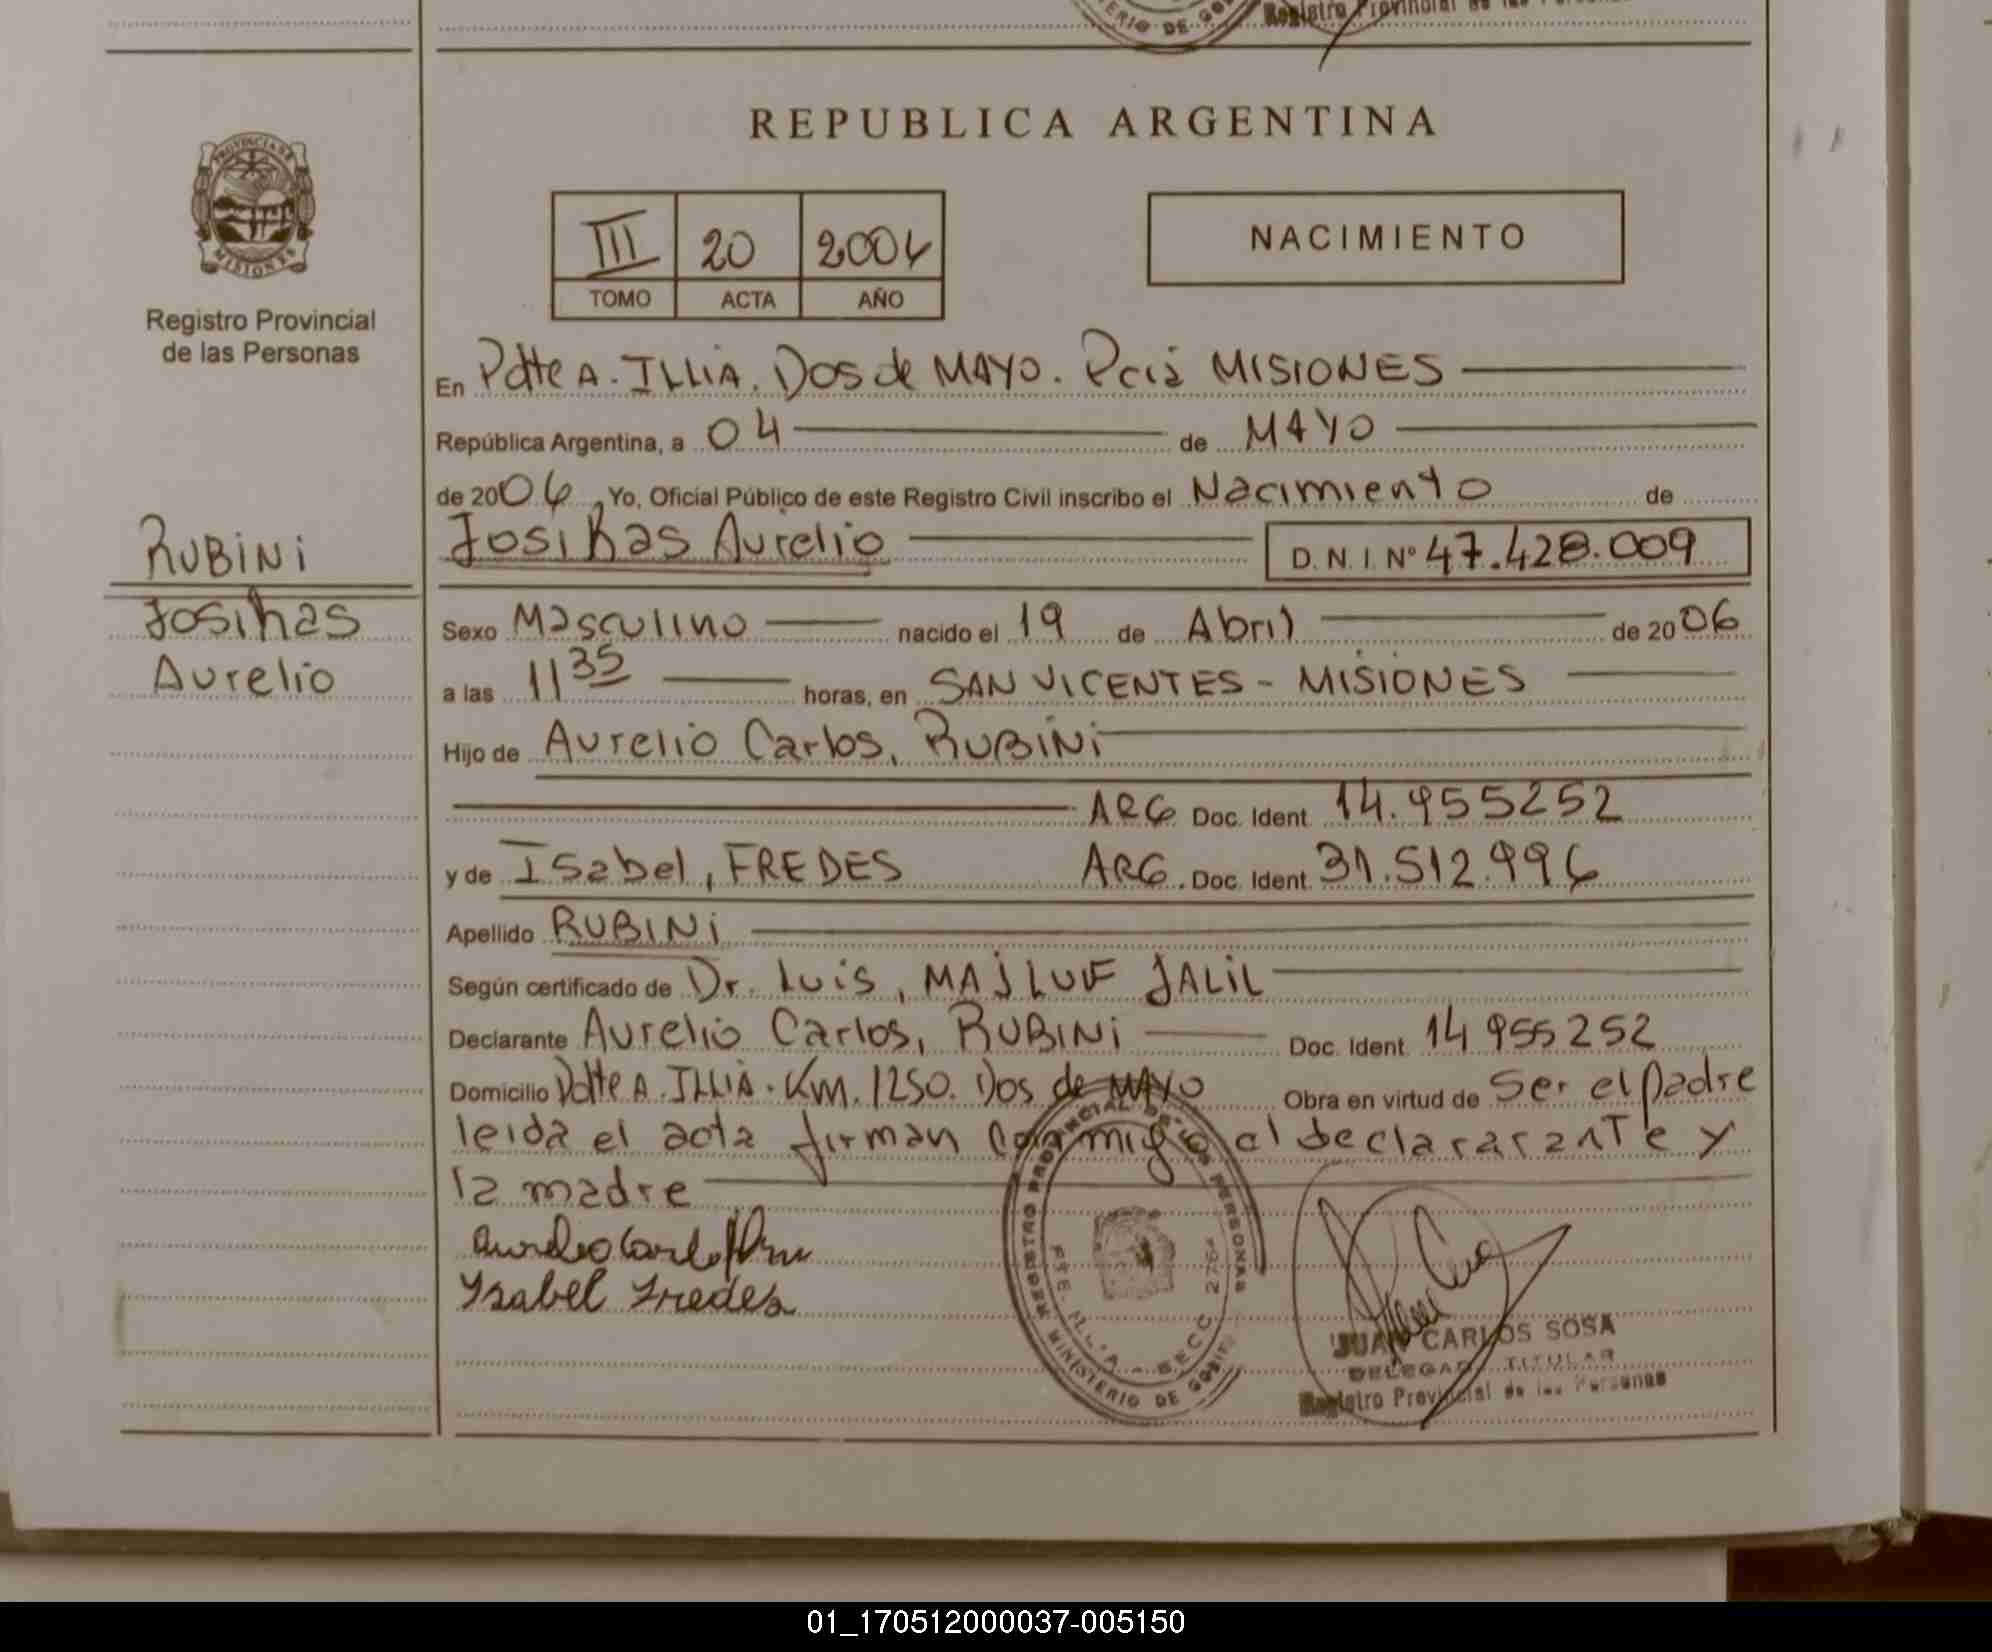 REPUBLICA ARGENTINA
PROVINCIA DE
MISIONES
Registro Provincial
de las Personas
III 20 2006
TOMO ACTA AÑO
NACIMIENTO
En Pdtte A. ILLIA. Dos de MAYO. Pcia MISIONES
República Argentina, a 04 de MAYO
de 2006, Yo, Oficial Público de este Registro Civil inscribo el Nacimiento de
Josihas Aurelio D. N. I. Nº 47.428.009
RUBINI
Josihas
Aurelio
Sexo Masculino nacido el 19 de Abril de 2006
a las 11 35 horas, en SAN VICENTES - MISIONES
Hijo de Aurelio Carlos, RUBINI
ARG Doc. Ident. 14.955252
y de Isabel, FREDES ARG. Doc. Ident. 31.512.996
Apellido RUBINI
Según certificado de Dr. Luis, MAJLUF JALIL
Declarante Aurelio Carlos, RUBINI Doc. Ident. 14 955 252
Domicilio Pdtte A. ILLIA. Km. 1250. Dos de MAYO Obra en virtud de Ser el padre
leida el acta firman conmigo el declararante y
la madre
Aurelio Carlos
Ysabel Fredes
REGISTRO PROVINCIAL DE LAS PERSONAS
MINISTERIO DE
JUAN CARLOS SOSA
DELEGADO TITULAR
Registro Provincial de las Personas
01_170512000037-005150